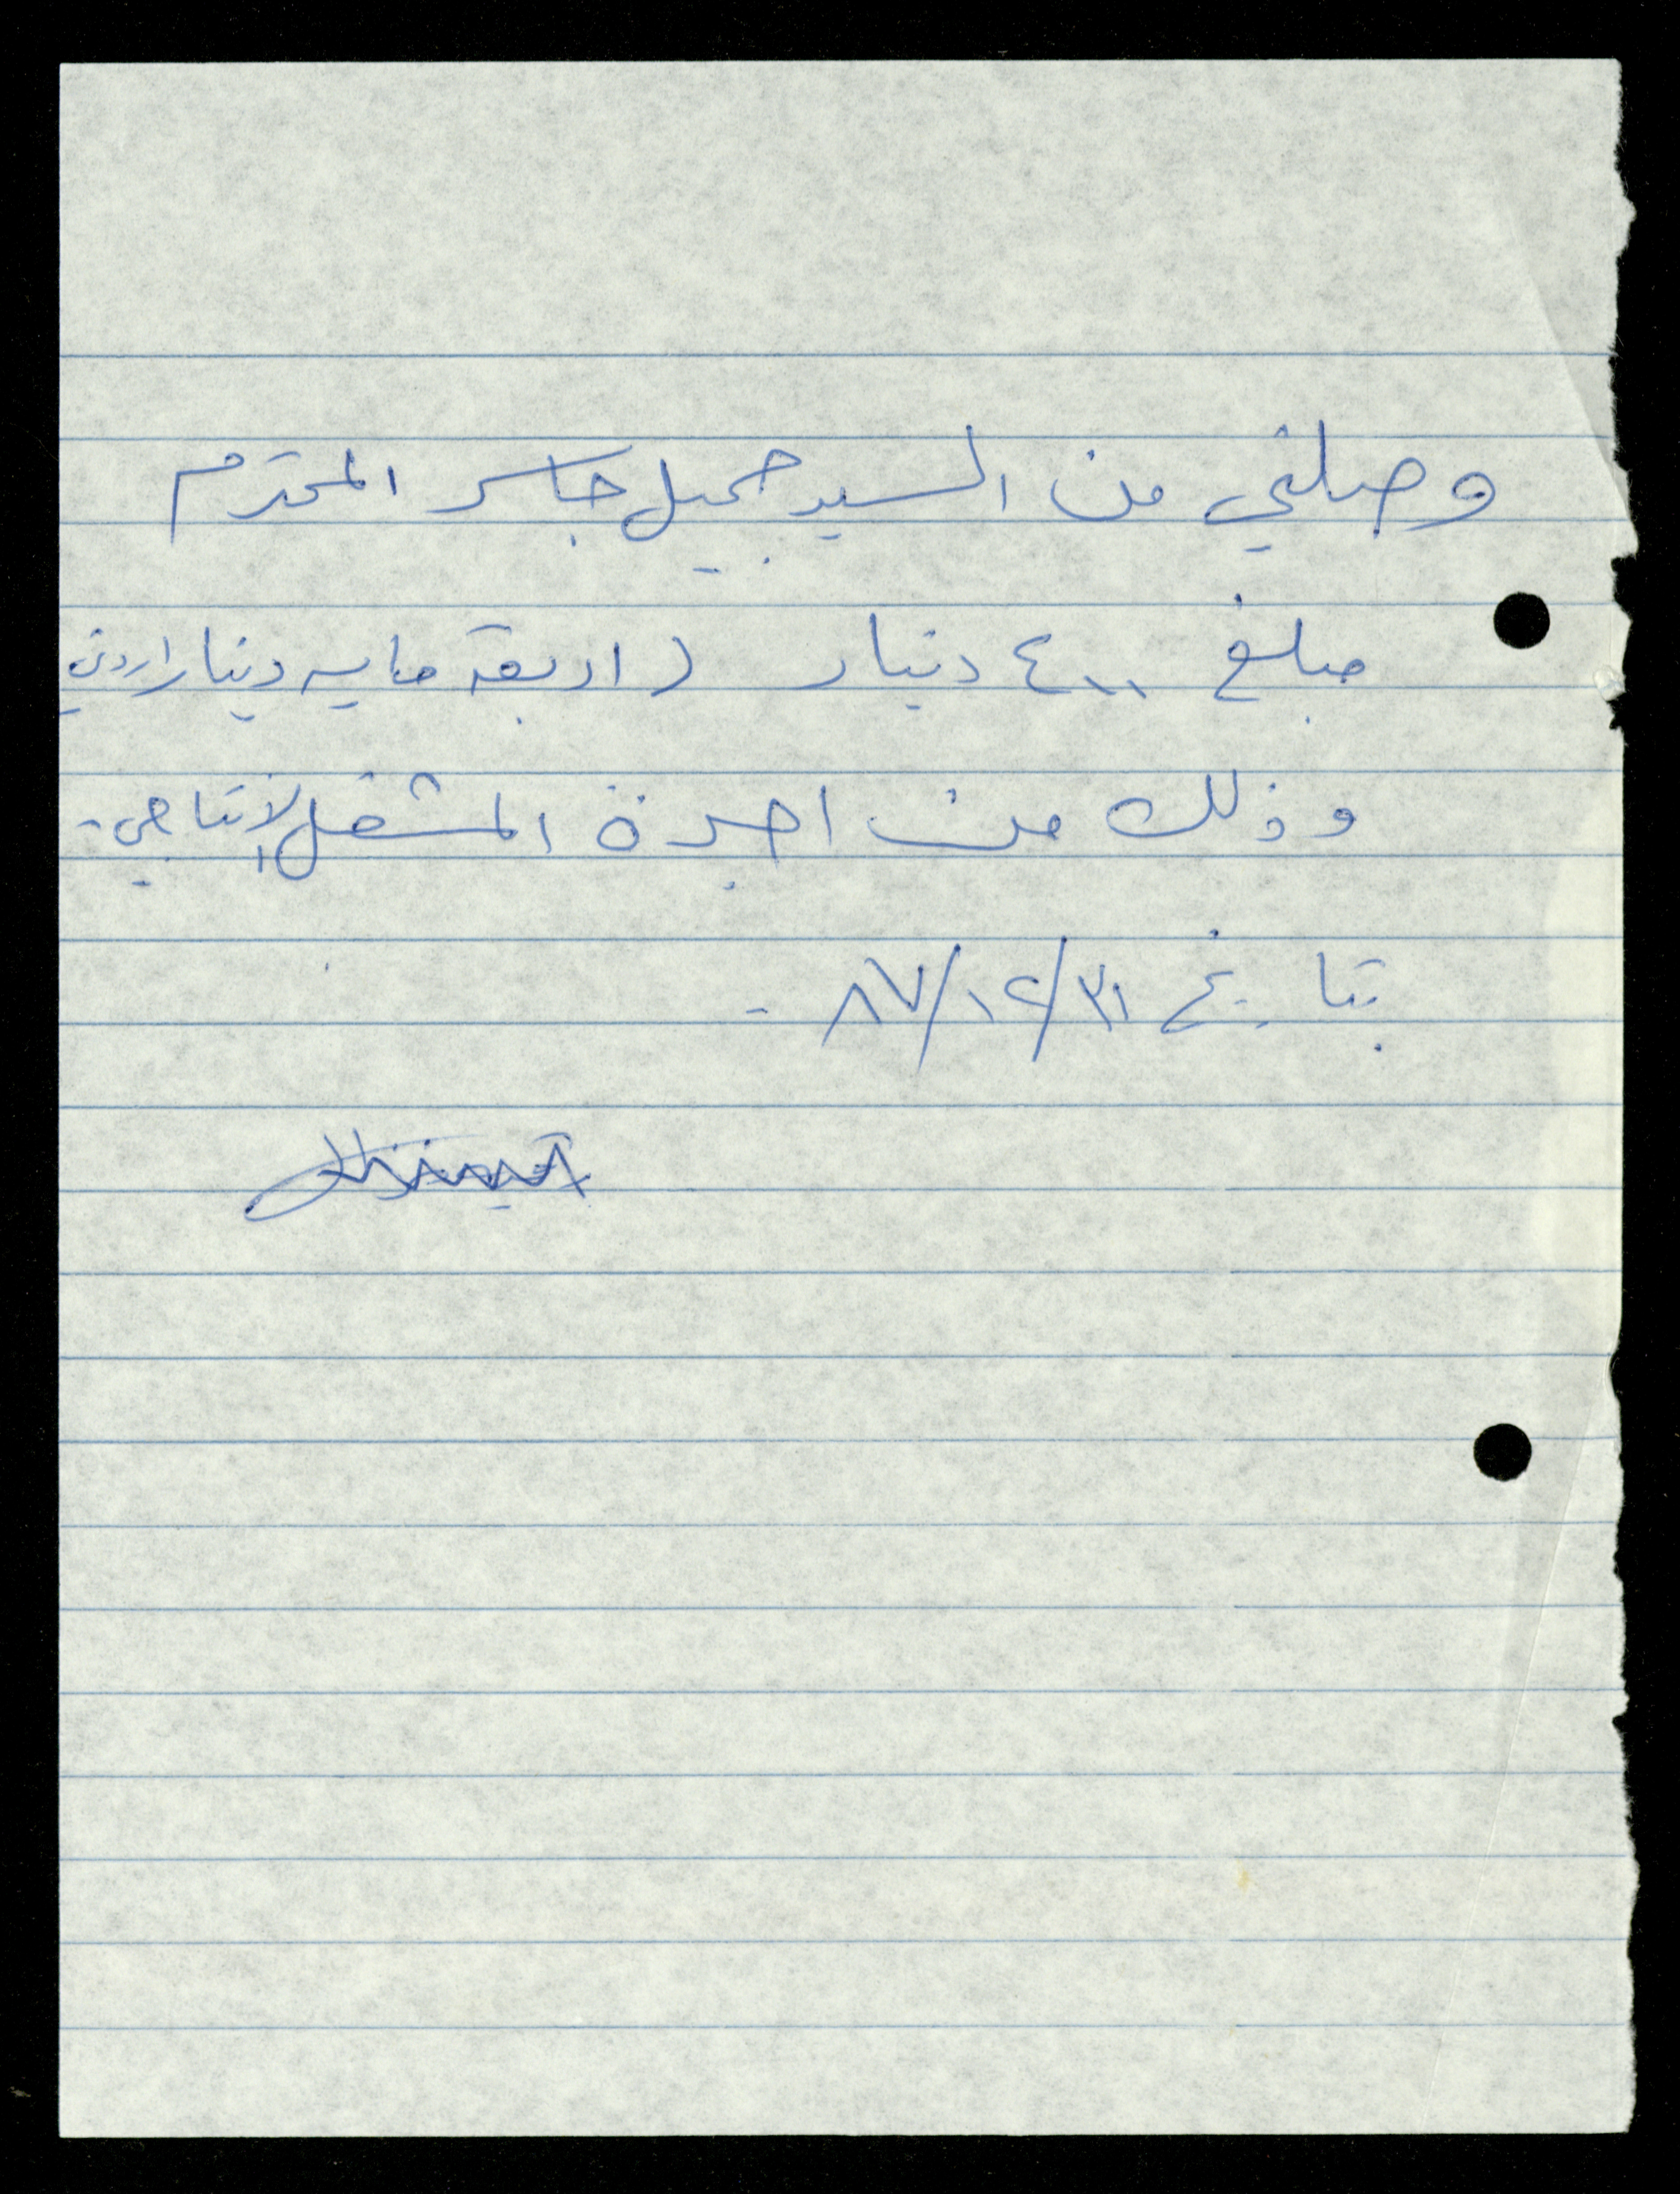 وصلني من السيد جميل جاسر المحترم
مبلغ ٤٠٠ دينار (اربعة مايه دينار اردني
وذلك من اجرة المشغل الانتاجي.
بتاريخ ٨٧/١٢/٣١ -